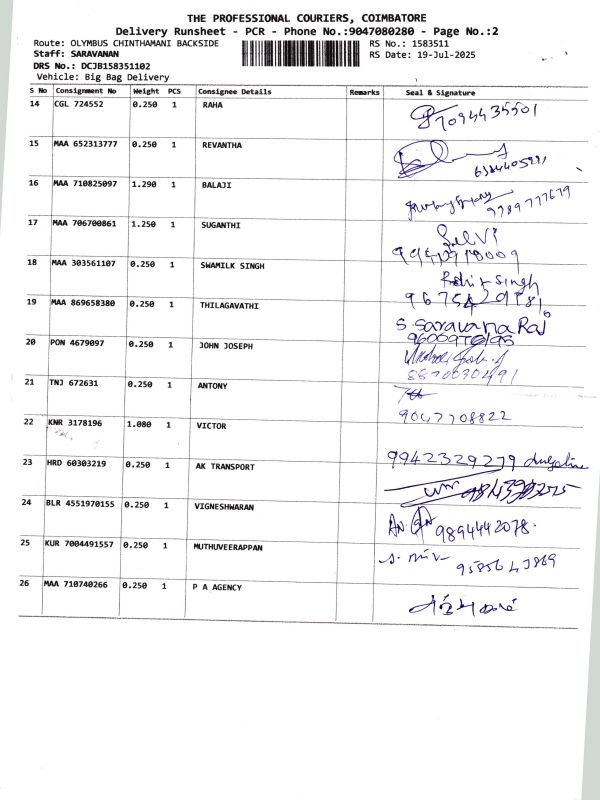 THE PROFESSIONAL COURIERS, COIMBATORE
Delivery Runsheet - PCR - Phone No.:9047080280 - Page No.:2
Route: OLYMBUS CHINTHAMANI BACKSIDE RS No.: 1583511
Staff: SARAVANAN RS Date: 19-Jul-2025
DRS No.: DCJB158351102
Vehicle: Big Bag Delivery
S No Consignment No Weight PCS Consignee Details Remarks Seal & Signature
14 CGL 724552 0.250 1 RAHA 7094435501
15 MAA 652313777 0.250 1 REVANTHA
16 MAA 710825097 1.290 1 BALAJI 9789777679
17 MAA 706700861 1.250 1 SUGANTHI Selvi
18 MAA 303561107 0.250 1 SWAMILK SINGH Rohit Singh
19 MAA 869658380 0.250 1 THILAGAVATHI S. Saravana Raj
20 PON 4679097 0.250 1 JOHN JOSEPH
21 TNJ 672631 0.250 1 ANTONY
9047708822
22 KNR 3178196 1.080 1 VICTOR
9942329279
23 HRD 60303219 0.250 1 AK TRANSPORT
24 BLR 4551970155 0.250 1 VIGNESHWARAN 9894442078.
25 KUR 7004491557 0.250 1 MUTHUVEERAPPAN
26 MAA 710740266 0.250 1 P A AGENCY